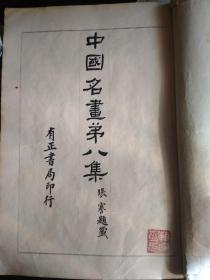 中國名畫第八集
張謇題籤
有正書局印行